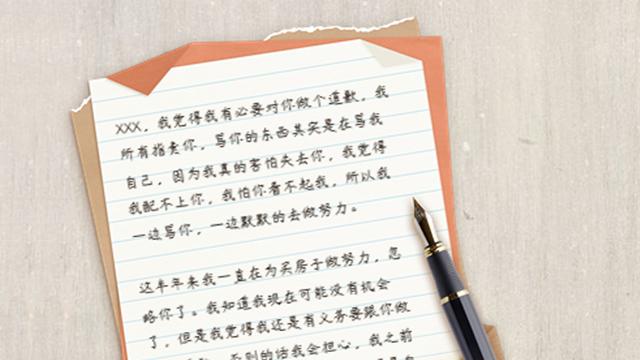 XXX，我觉得我有必要对你做个道歉，我
所有指责你，骂你的东西其实是在骂我
自己，因为我真的害怕失去你，我觉得
我配不上你，我怕你看不起我，所以我
一边骂你，一边默默的去做努力。
这半年来我一直在为买房子做努力，忽
略你了。我知道我现在可能没有机会
了，但是我觉得我还是有义务要跟你做
否则的话我会担心，我之前